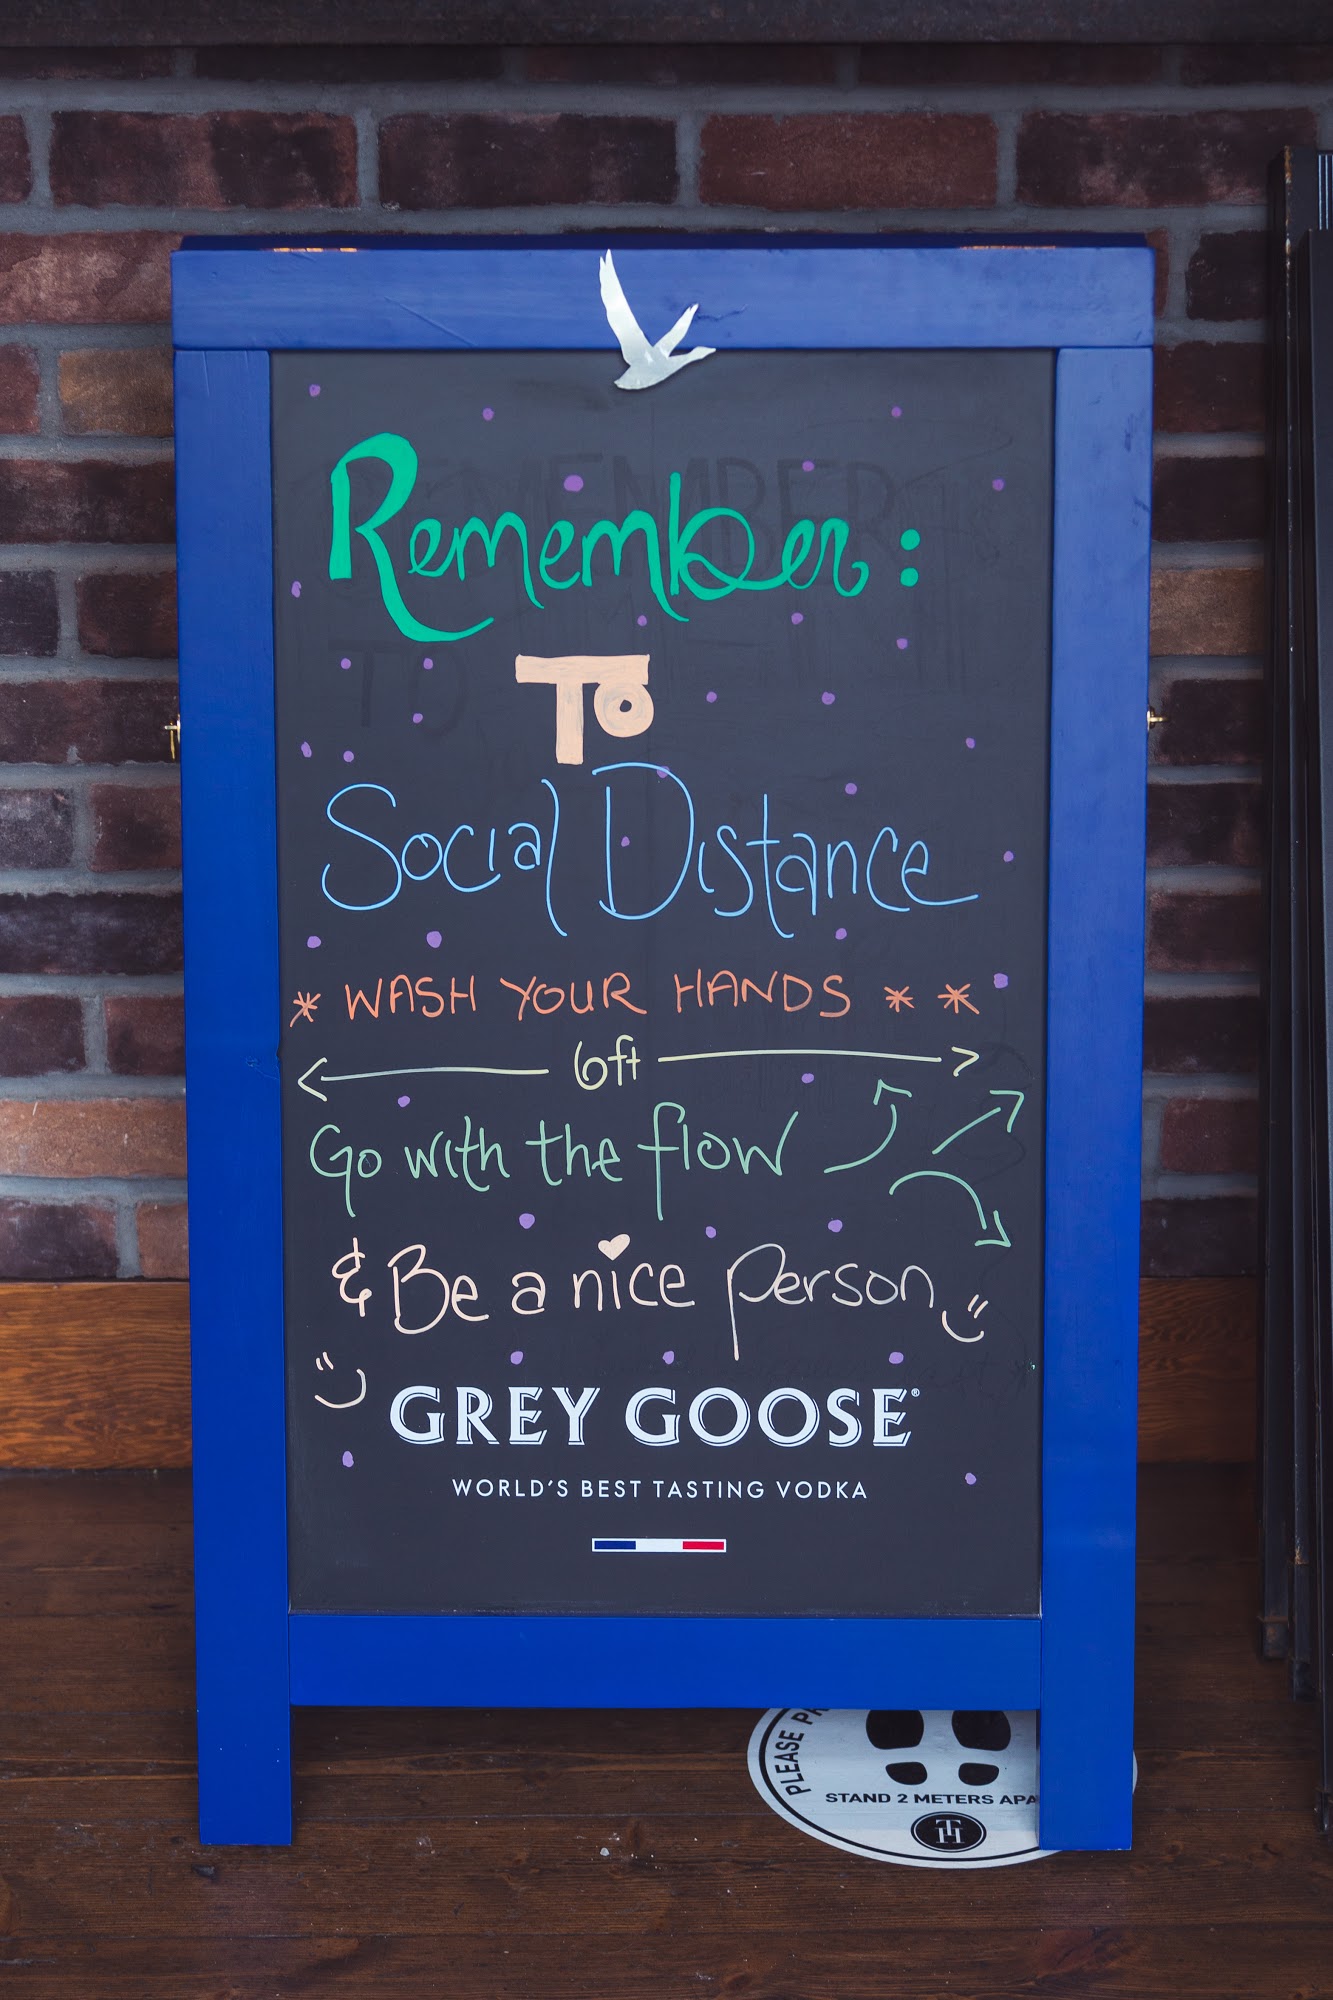 Remember:
To
Social Distance
* WASH YOUR HANDS * *
6ft
Go with the flow
& Be a nice person
GREY GOOSE®
WORLD'S BEST TASTING VODKA
PLEASE
STAND 2 METERS
TH